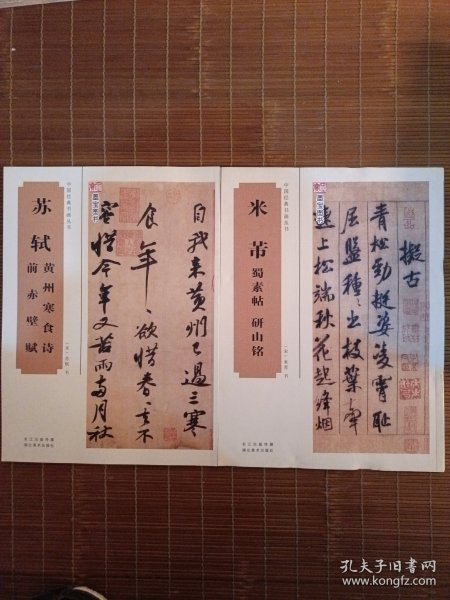 中国经典书画丛书
苏轼
黄州寒食诗
前赤壁赋
(宋)苏轼 书
长江出版传媒
湖北美术出版社
墨宝图书
自我来黄州已过三寒
食年、欲惜春、去不
容惜今年又苦雨两月秋
中国经典书画丛书
米芾
蜀素帖 研山铭
(宋)米芾 书
长江出版传媒
湖北美术出版社
墨宝图书
拟古
青松劲挺姿凌霄耻
屈盘种、出枝叶牵
连上松端秋花起绛烟
孔夫子旧书网
www.kongfz.com